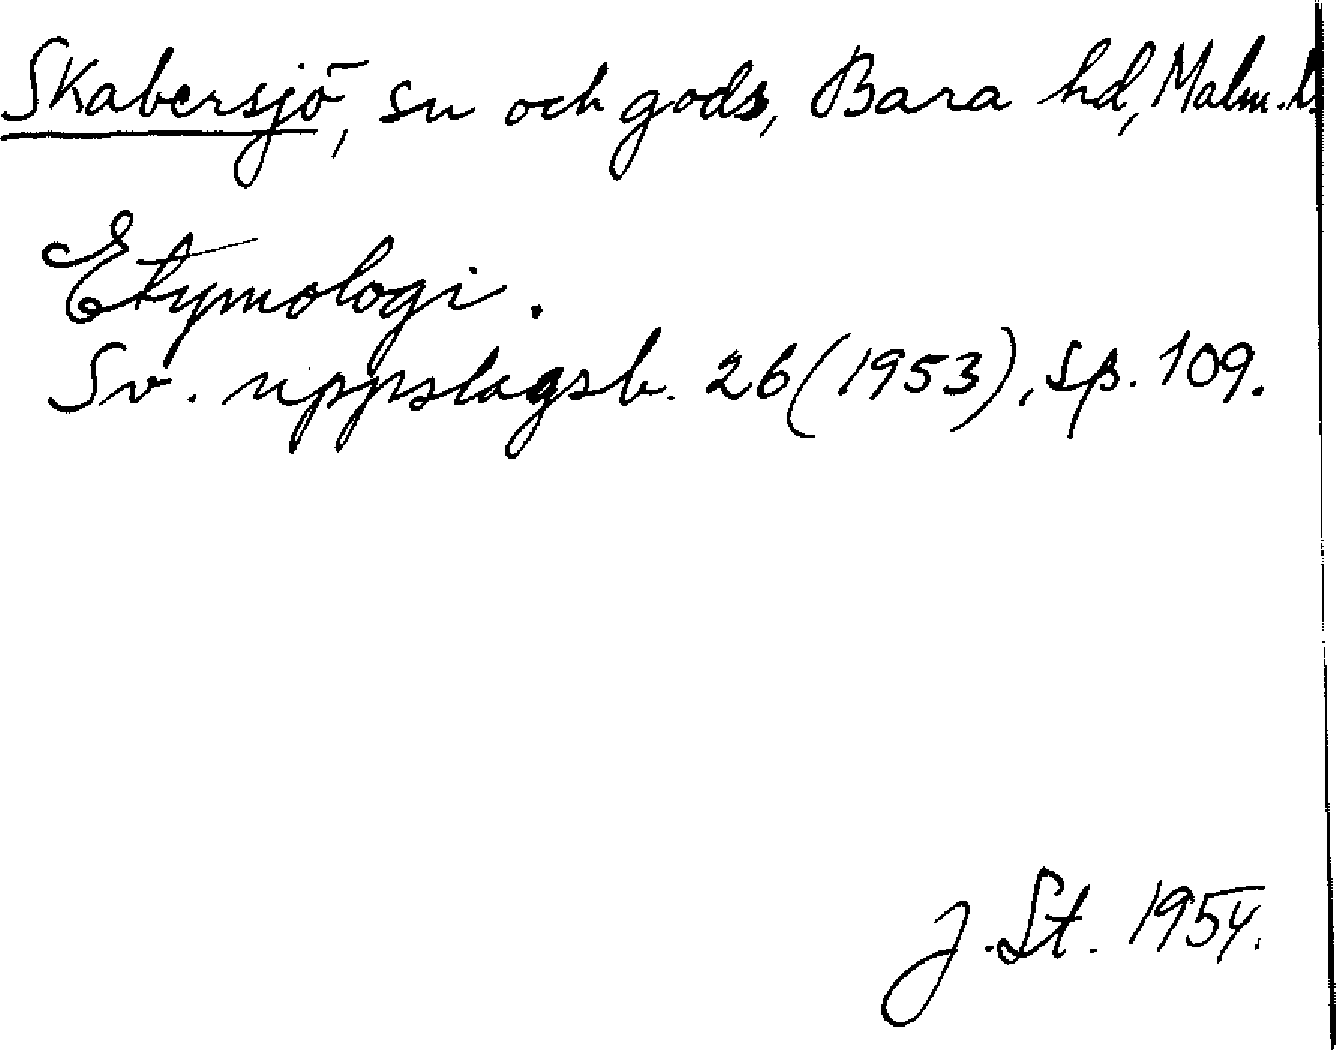 Skabersjö, sn och gods, Bara hd, Malm. l.
Etymologi.
Sv. uppslagsb. 26 (1953), sp. 109.
J. St. 1954.